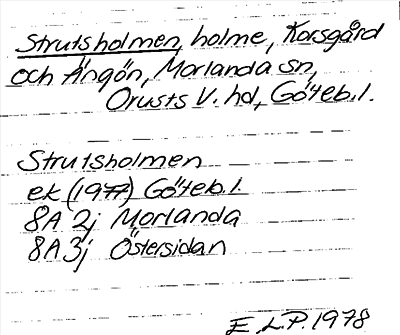 Strutsholmen, holme, Korsgård
och Ängön, Morlanda sn,
Orusts V. hd, Göteb. l.
Strutsholmen
ek (1977) Göteb. l.
8A 2j Morlanda
8A 3j Östersidan
E.L.P. 1978